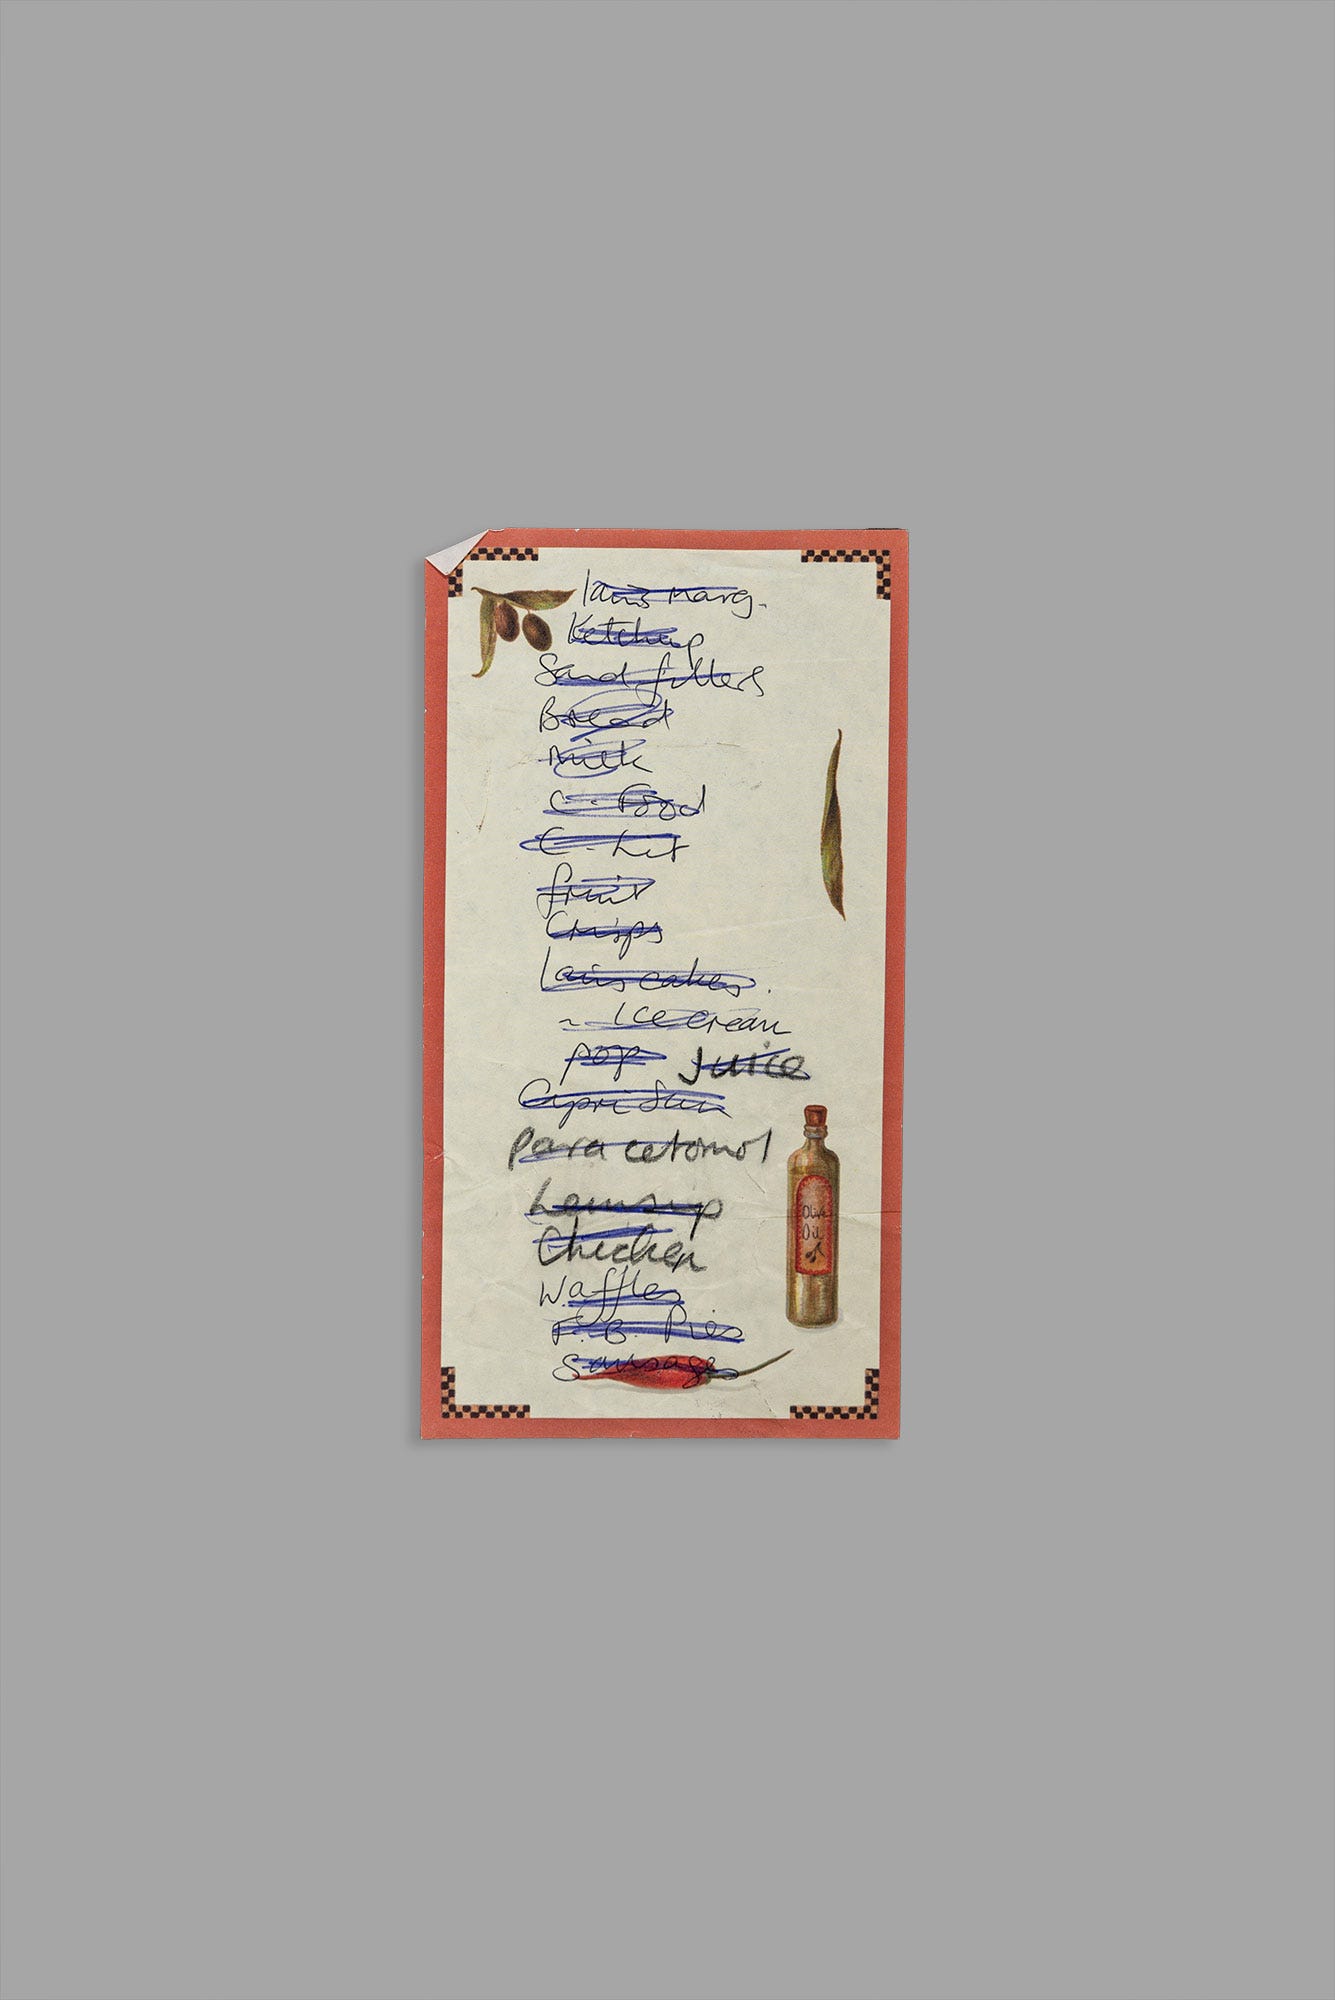 Iains Marg.
Ketchup
Sand fillers
Bread
Milk
C - Food
C - Lit
fruit
Crisps
Iains cakes.
~ Ice cream
pop Juice
Capri Sun
Para cetomol
Lemsip
Chicken
Waffles
F. B. Pies
Sausages
Olive
Oil